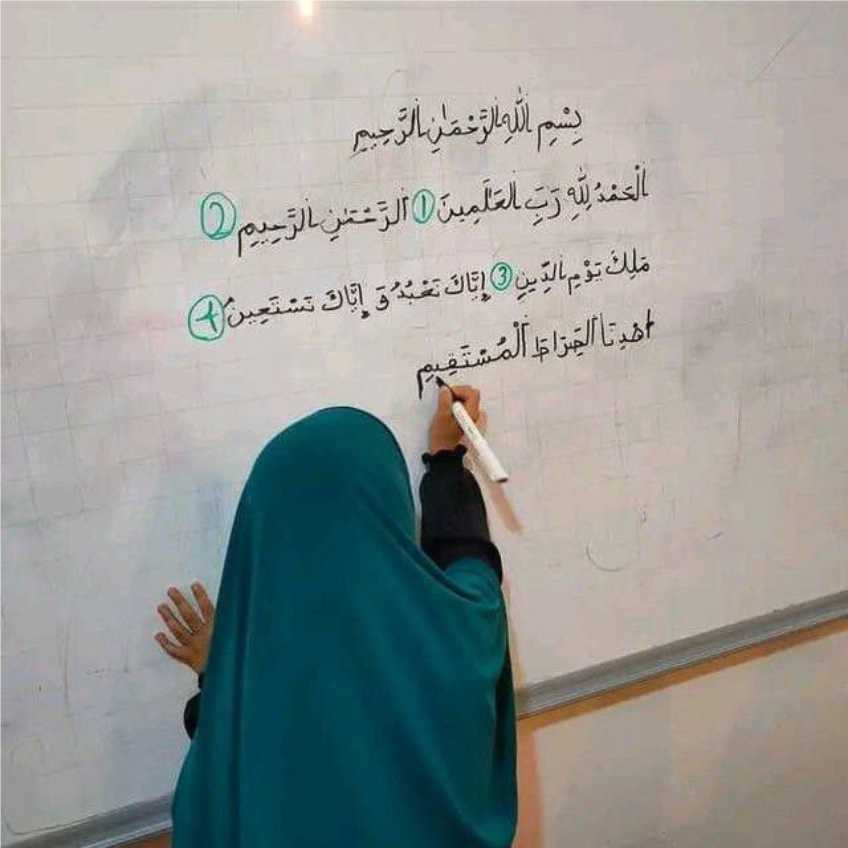 بِسْمِ اللَّهِ الرَّحْمَٰنِ الرَّحِيمِ
الْحَمْدُ لِلَّهِ رَبِّ الْعَالَمِينَ 1 الرَّحْمَٰنِ الرَّحِيمِ 2
مَلِكِ يَوْمِ الدِّينِ 3 إِيَّاكَ نَعْبُدُ وَ إِيَّاكَ نَسْتَعِينُ 4
اهْدِنَا الصِّرَاطَ الْمُسْتَقِيمِ